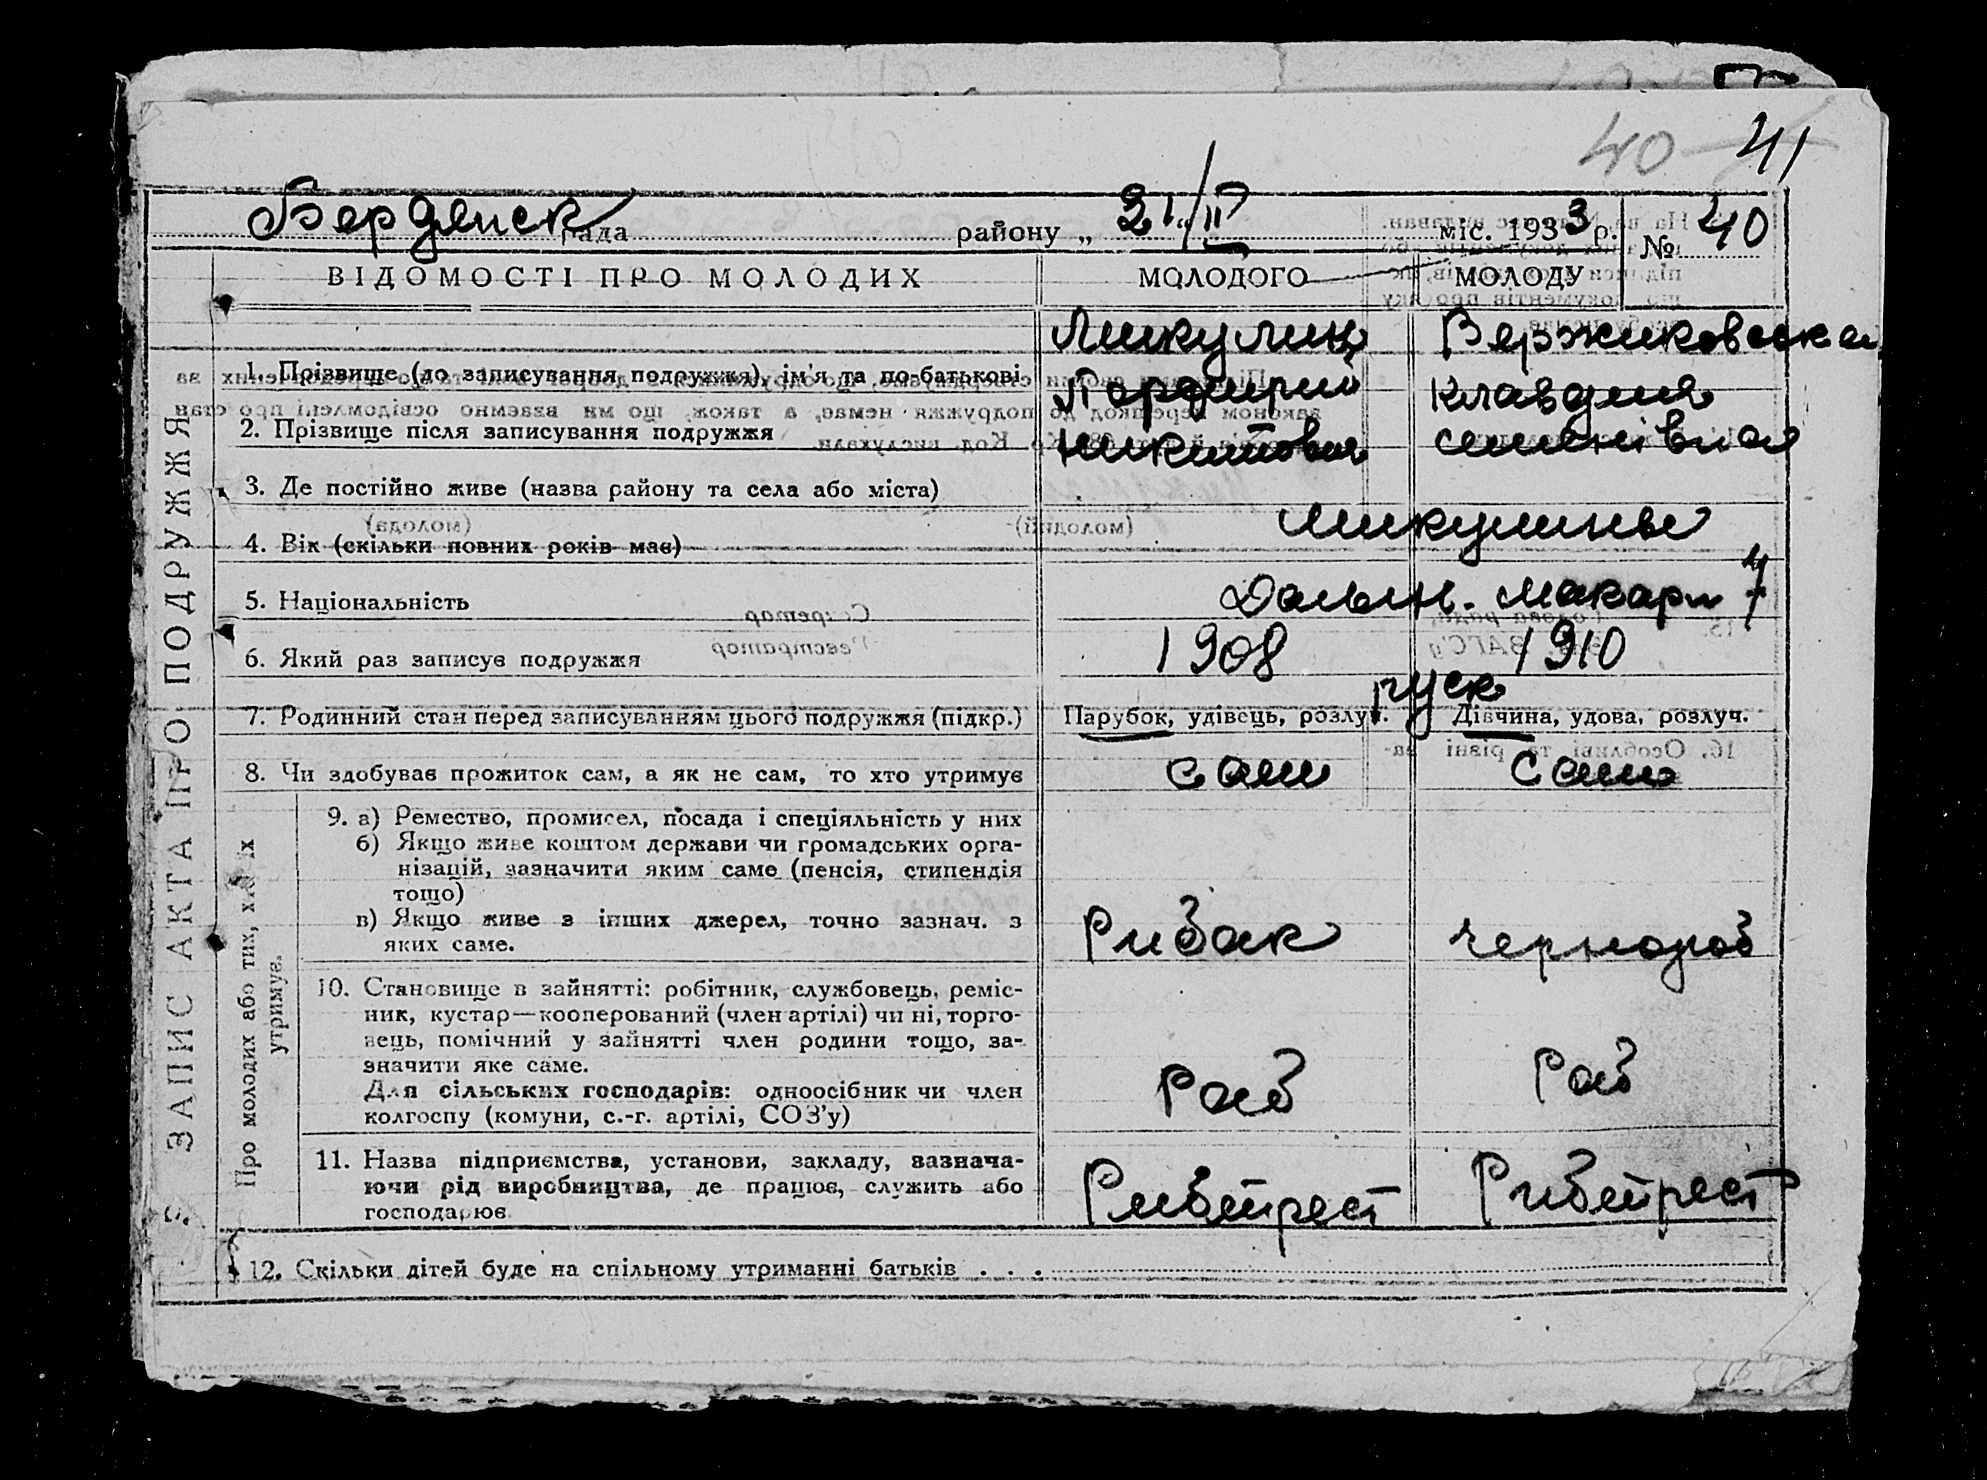 40 41
Бердянск рада району „ 21/II міс. 1933 р. № 40
ВІДОМОСТІ ПРО МОЛОДИХ МОЛОДОГО МОЛОДУ
ЗАПИС АКТА ПРО ПОДРУЖЖЯ
Микулин Вержиковська
1. Прізвище (до записування подружжя), ім'я та по-батькові
Порфирий Клавдия
2. Прізвище після записування подружжя
Никитович семенівна
3. Де постійно живе (назва району та села або міста)
Микулины
4. Вік (скільки повних років має)
Дальн. Макари 7
5. Національність
1908 1910
6. Який раз записує подружжя
руск
7. Родинний стан перед записуванням цього подружжя (підкр.) Парубок, удівець, розлуч. Дівчина, удова, розлуч.
8. Чи здобуває прожиток сам, а як не сам, то хто утримує сам сама
Про молодих або тих, хто їх
утримує.
9. а) Ремество, промисел, посада і спеціяльність у них
б) Якщо живе коштом держави чи громадських орга-
нізацій, зазначити яким саме (пенсія, стипендія
тощо)
в) Якщо живе з інших джерел, точно зазнач. з
яких саме.
Рибак Чернороб
10. Становище в зайнятті: робітник, службовець, реміс-
ник, кустар—кооперований (член артілі) чи ні, торго-
вець, помічний у зайнятті член родини тощо, за-
значити яке саме.
Для сільських господарів: одноосібник чи член
колгоспу (комуни, с.-г. артілі, СОЗ'у)
Раб Раб
11. Назва підприємства, установи, закладу, зазнача-
ючи рід виробництва, де працює, служить або
господарює
Рибтрест Рибтрест
12. Скільки дітей буде на спільному утриманні батьків . . .